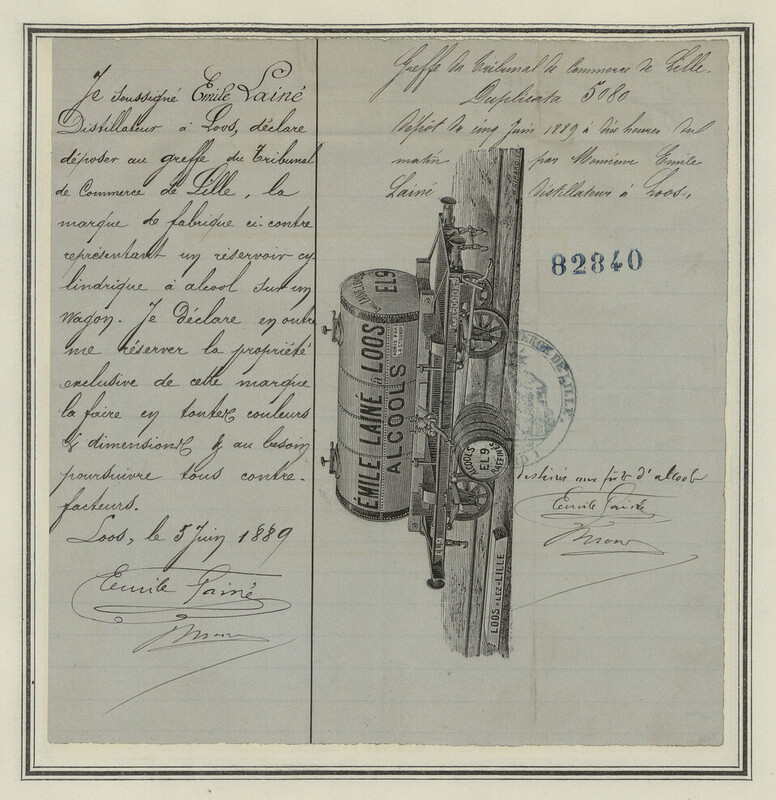 Je soussigné Emile Lainé
Distillateur à Loos, déclare
déposer au greffe du Tribunal
de Commerce de Lille, la
marque de fabrique ci-contre
représentant un réservoir cy-
lindrique à alcool sur un
wagon. Je déclare en outre
me réserver la propriété
exclusive de cette marque
la faire en toutes couleurs
& dimensions & au besoin
poursuivre tous contre-
facteurs.
Loos, le 5 Juin 1889
Emile Lainé
Greffe du Tribunal de Commerce de Lille.
Duplicata 5080
Dépôt du cinq Juin 1889 à dix heures du
matin par Monsieur Emile
Lainé Distillateur à Loos.
82840
EMILE LAINÉ à LOOS
ALCOOLS
EL9
ALCOOLS
EL9
RAFFINÉS
EL9
LOOS-LEZ-LILLE
COMMERCE DE LILLE
destinés aux fûts d'alcools
Emile Lainé